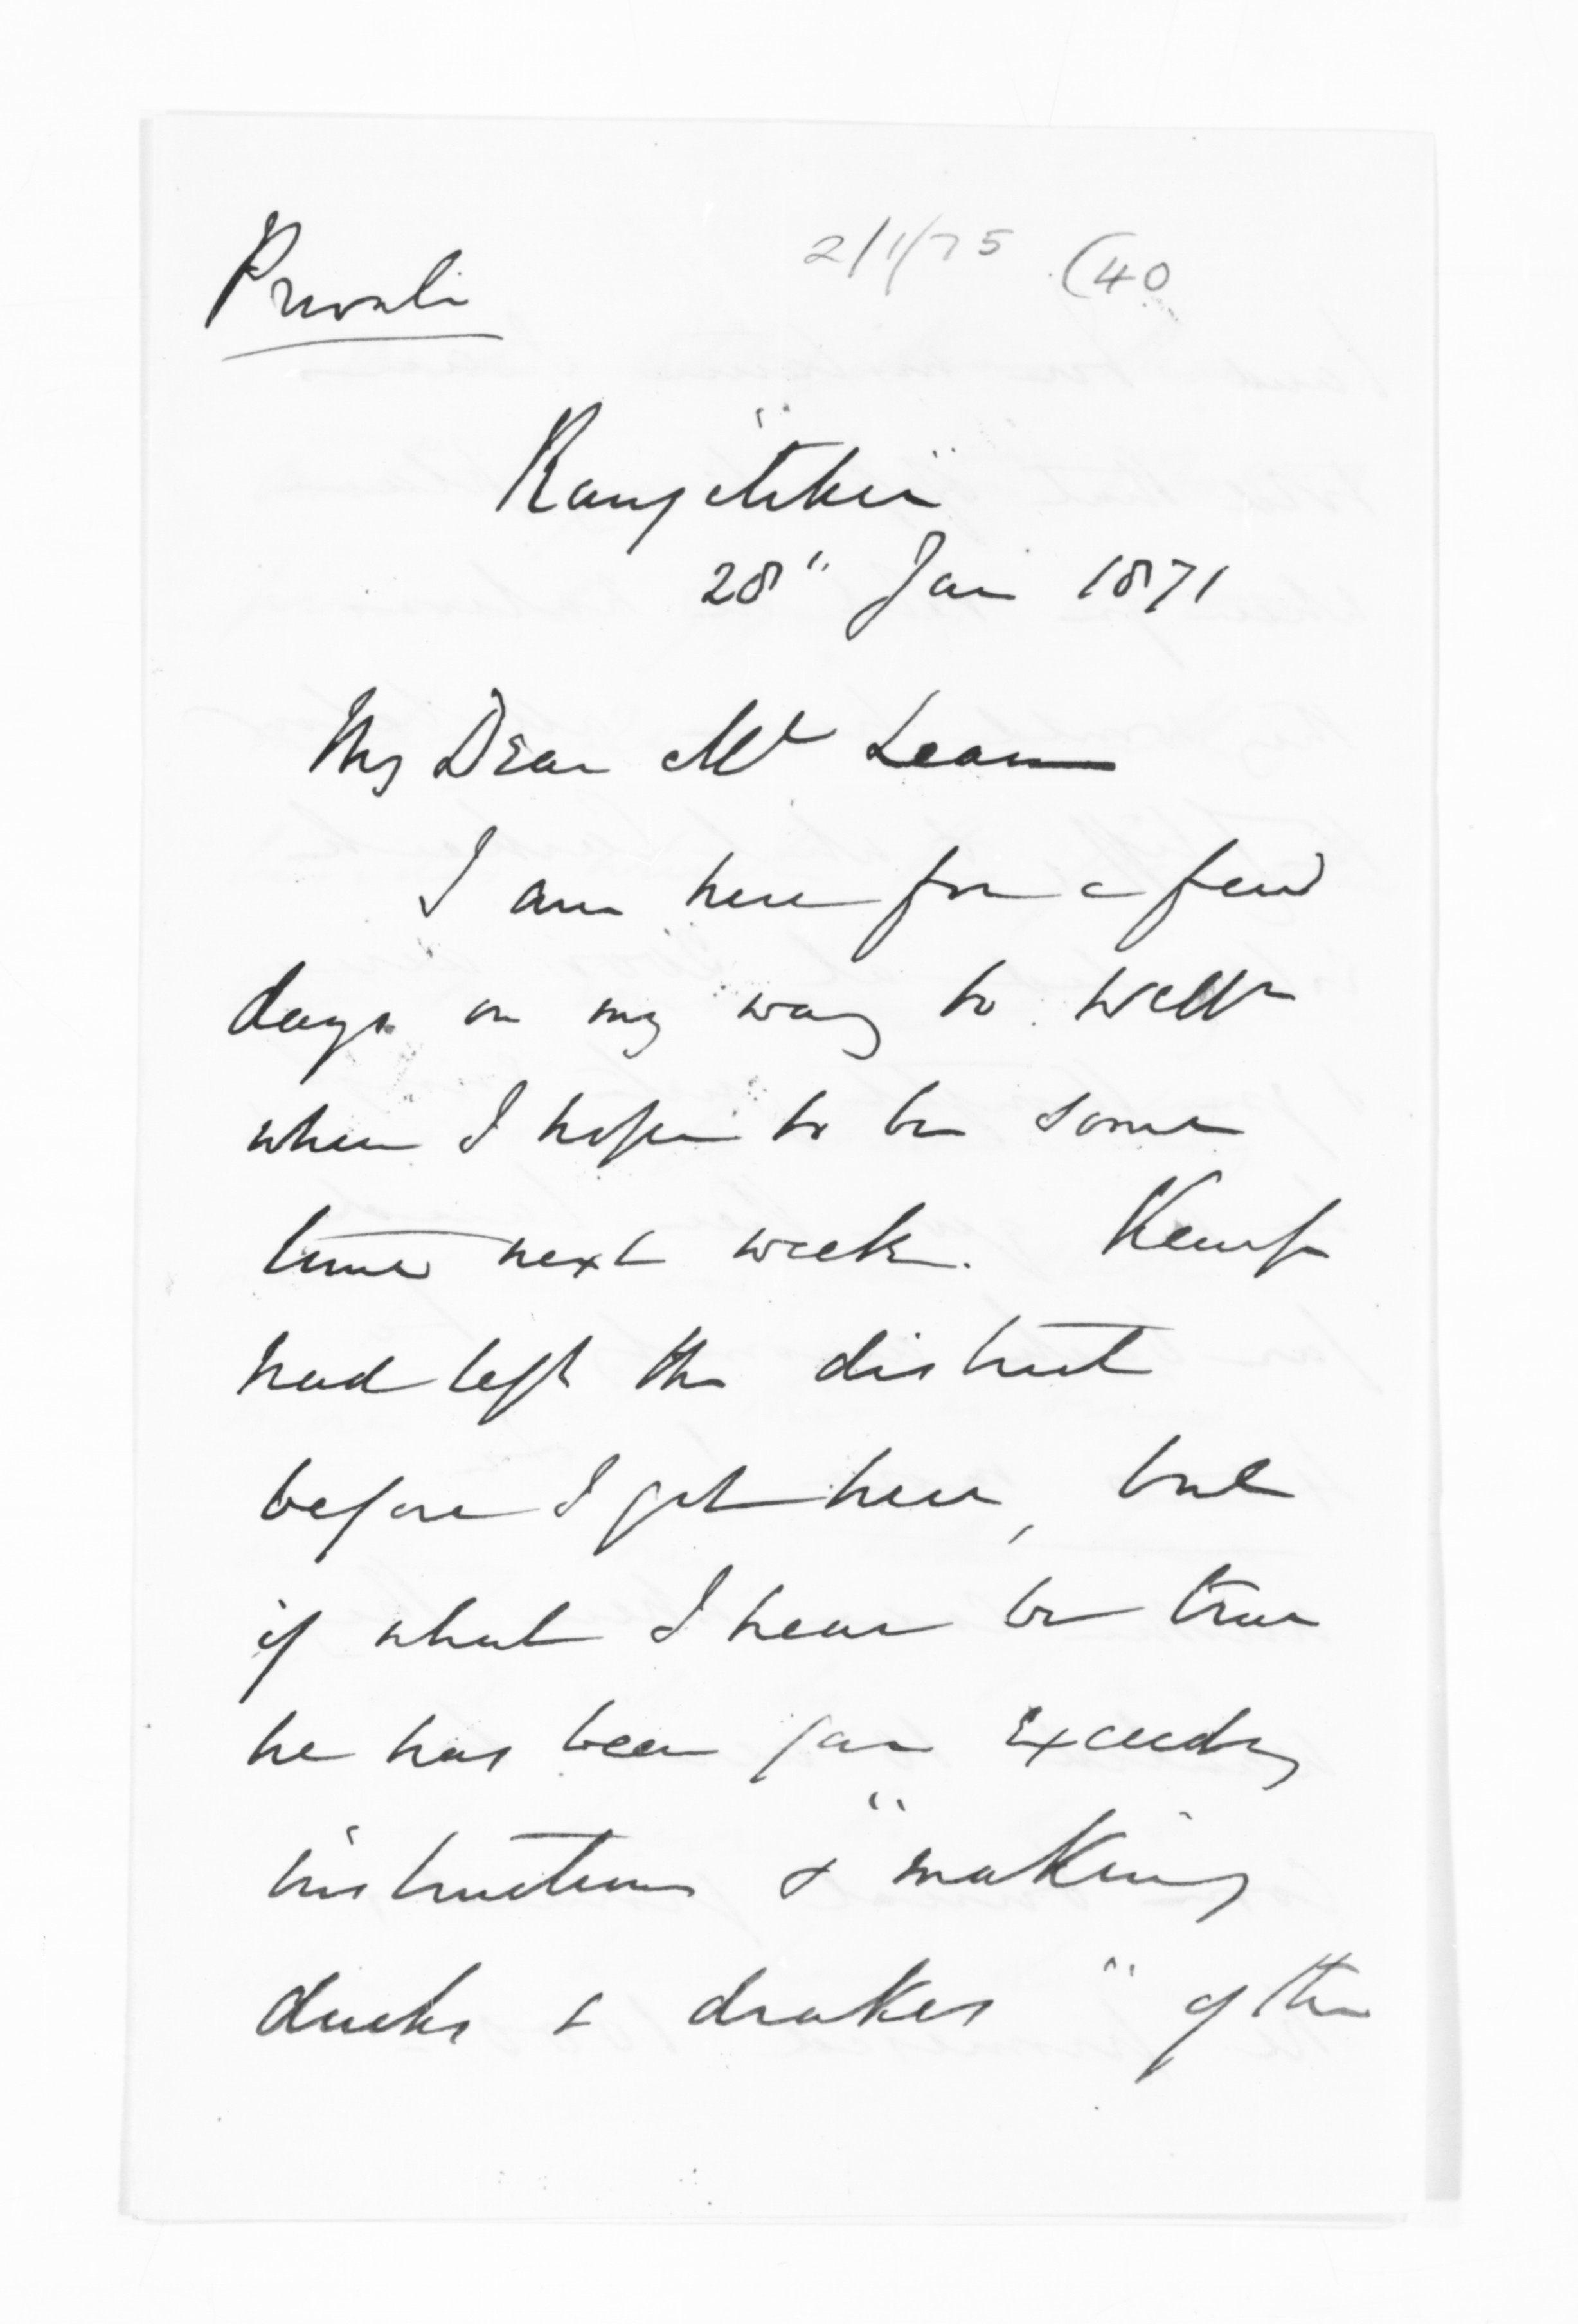 Private
2/1/75 (40
Rangitikei
28" Jan 1871
My Dear Mr Lean
I am here for a few
days on my way to Welln
where I hope to be some
time next week. Kemp
had left the district
before I got here, but
if what I hear be true
he has been far exceeding
instructions & "making
ducks & drakes" of the